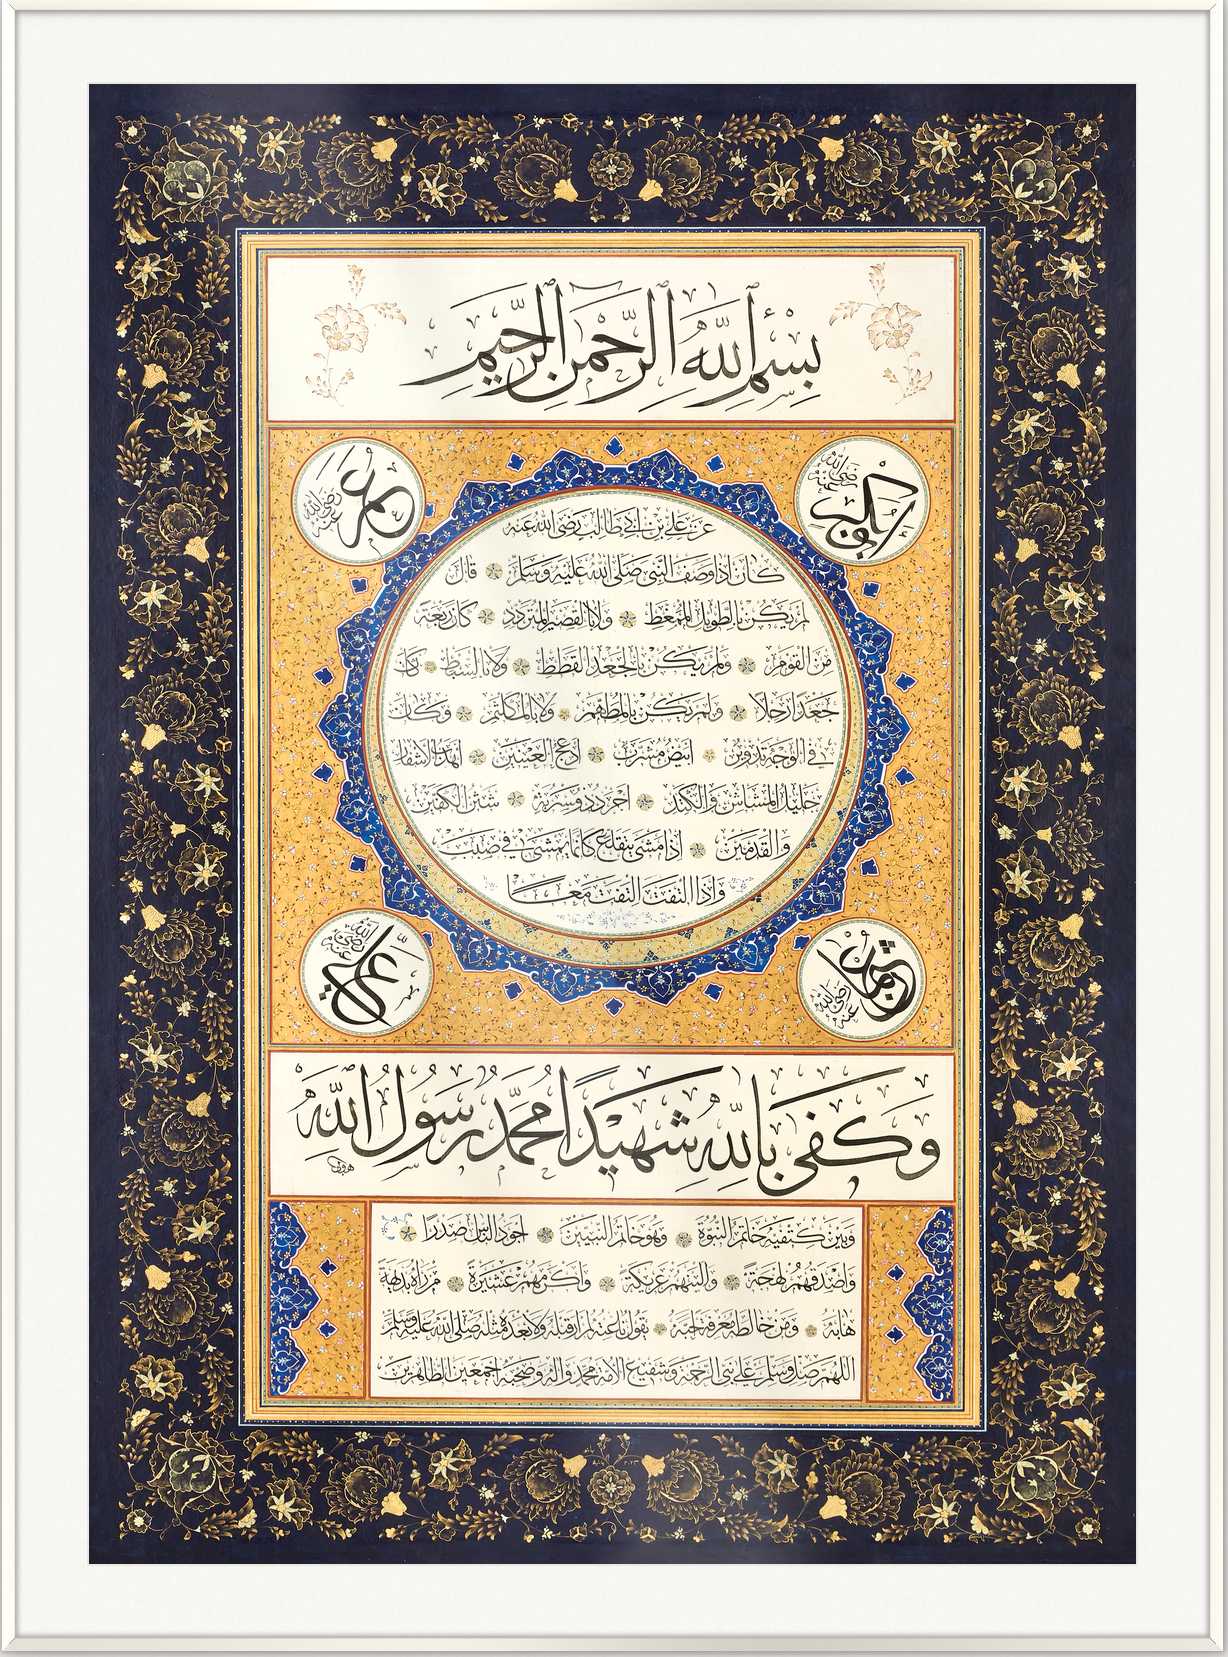 بِسْمِ اللّٰهِ الرَّحْمٰنِ الرَّحِيمِ
ابوبكر رضي الله عنه
عمر رضي الله عنه
عن علي بن ابي طالب رضي الله عنه
كان اذا وصف النبي صلى الله عليه وسلم قال
لم يكن بالطويل الممغط ولا بالقصير المتردد كان ربعة
من القوم ولم يكن بالجعد القطط ولا بالسبط كان
جعدا رجلا ولم يكن بالمطهم ولا بالمكلثم وكان
في الوجه تدوير ابيض مشرب ادعج العينين اهدب الاشفار
جليل المشاش والكتد اجرد ذو مسربة شثن الكفين
والقدمين اذا مشى يتقلع كانما يمشي في صبب
واذا التفت التفت معا
عثمان رضي الله عنه
علي رضي الله عنه
وَكَفٰى بِاللّٰهِ شَهِيدًا مُحَمَّدٌ رَسُولُ اللّٰهِ
وبين كتفيه خاتم النبوة وهو خاتم النبيين اجود الناس صدرا
واصدقهم لهجة والينهم عريكة واكرمهم عشيرة من رآه بديهة
هابه ومن خالطه معرفة احبه يقول ناعته لم ار قبله ولا بعده مثله صلى الله عليه وسلم
اللهم صل وسلم على نبي الرحمة وشفيع الامة محمد وآله وصحبه اجمعين الطاهرين